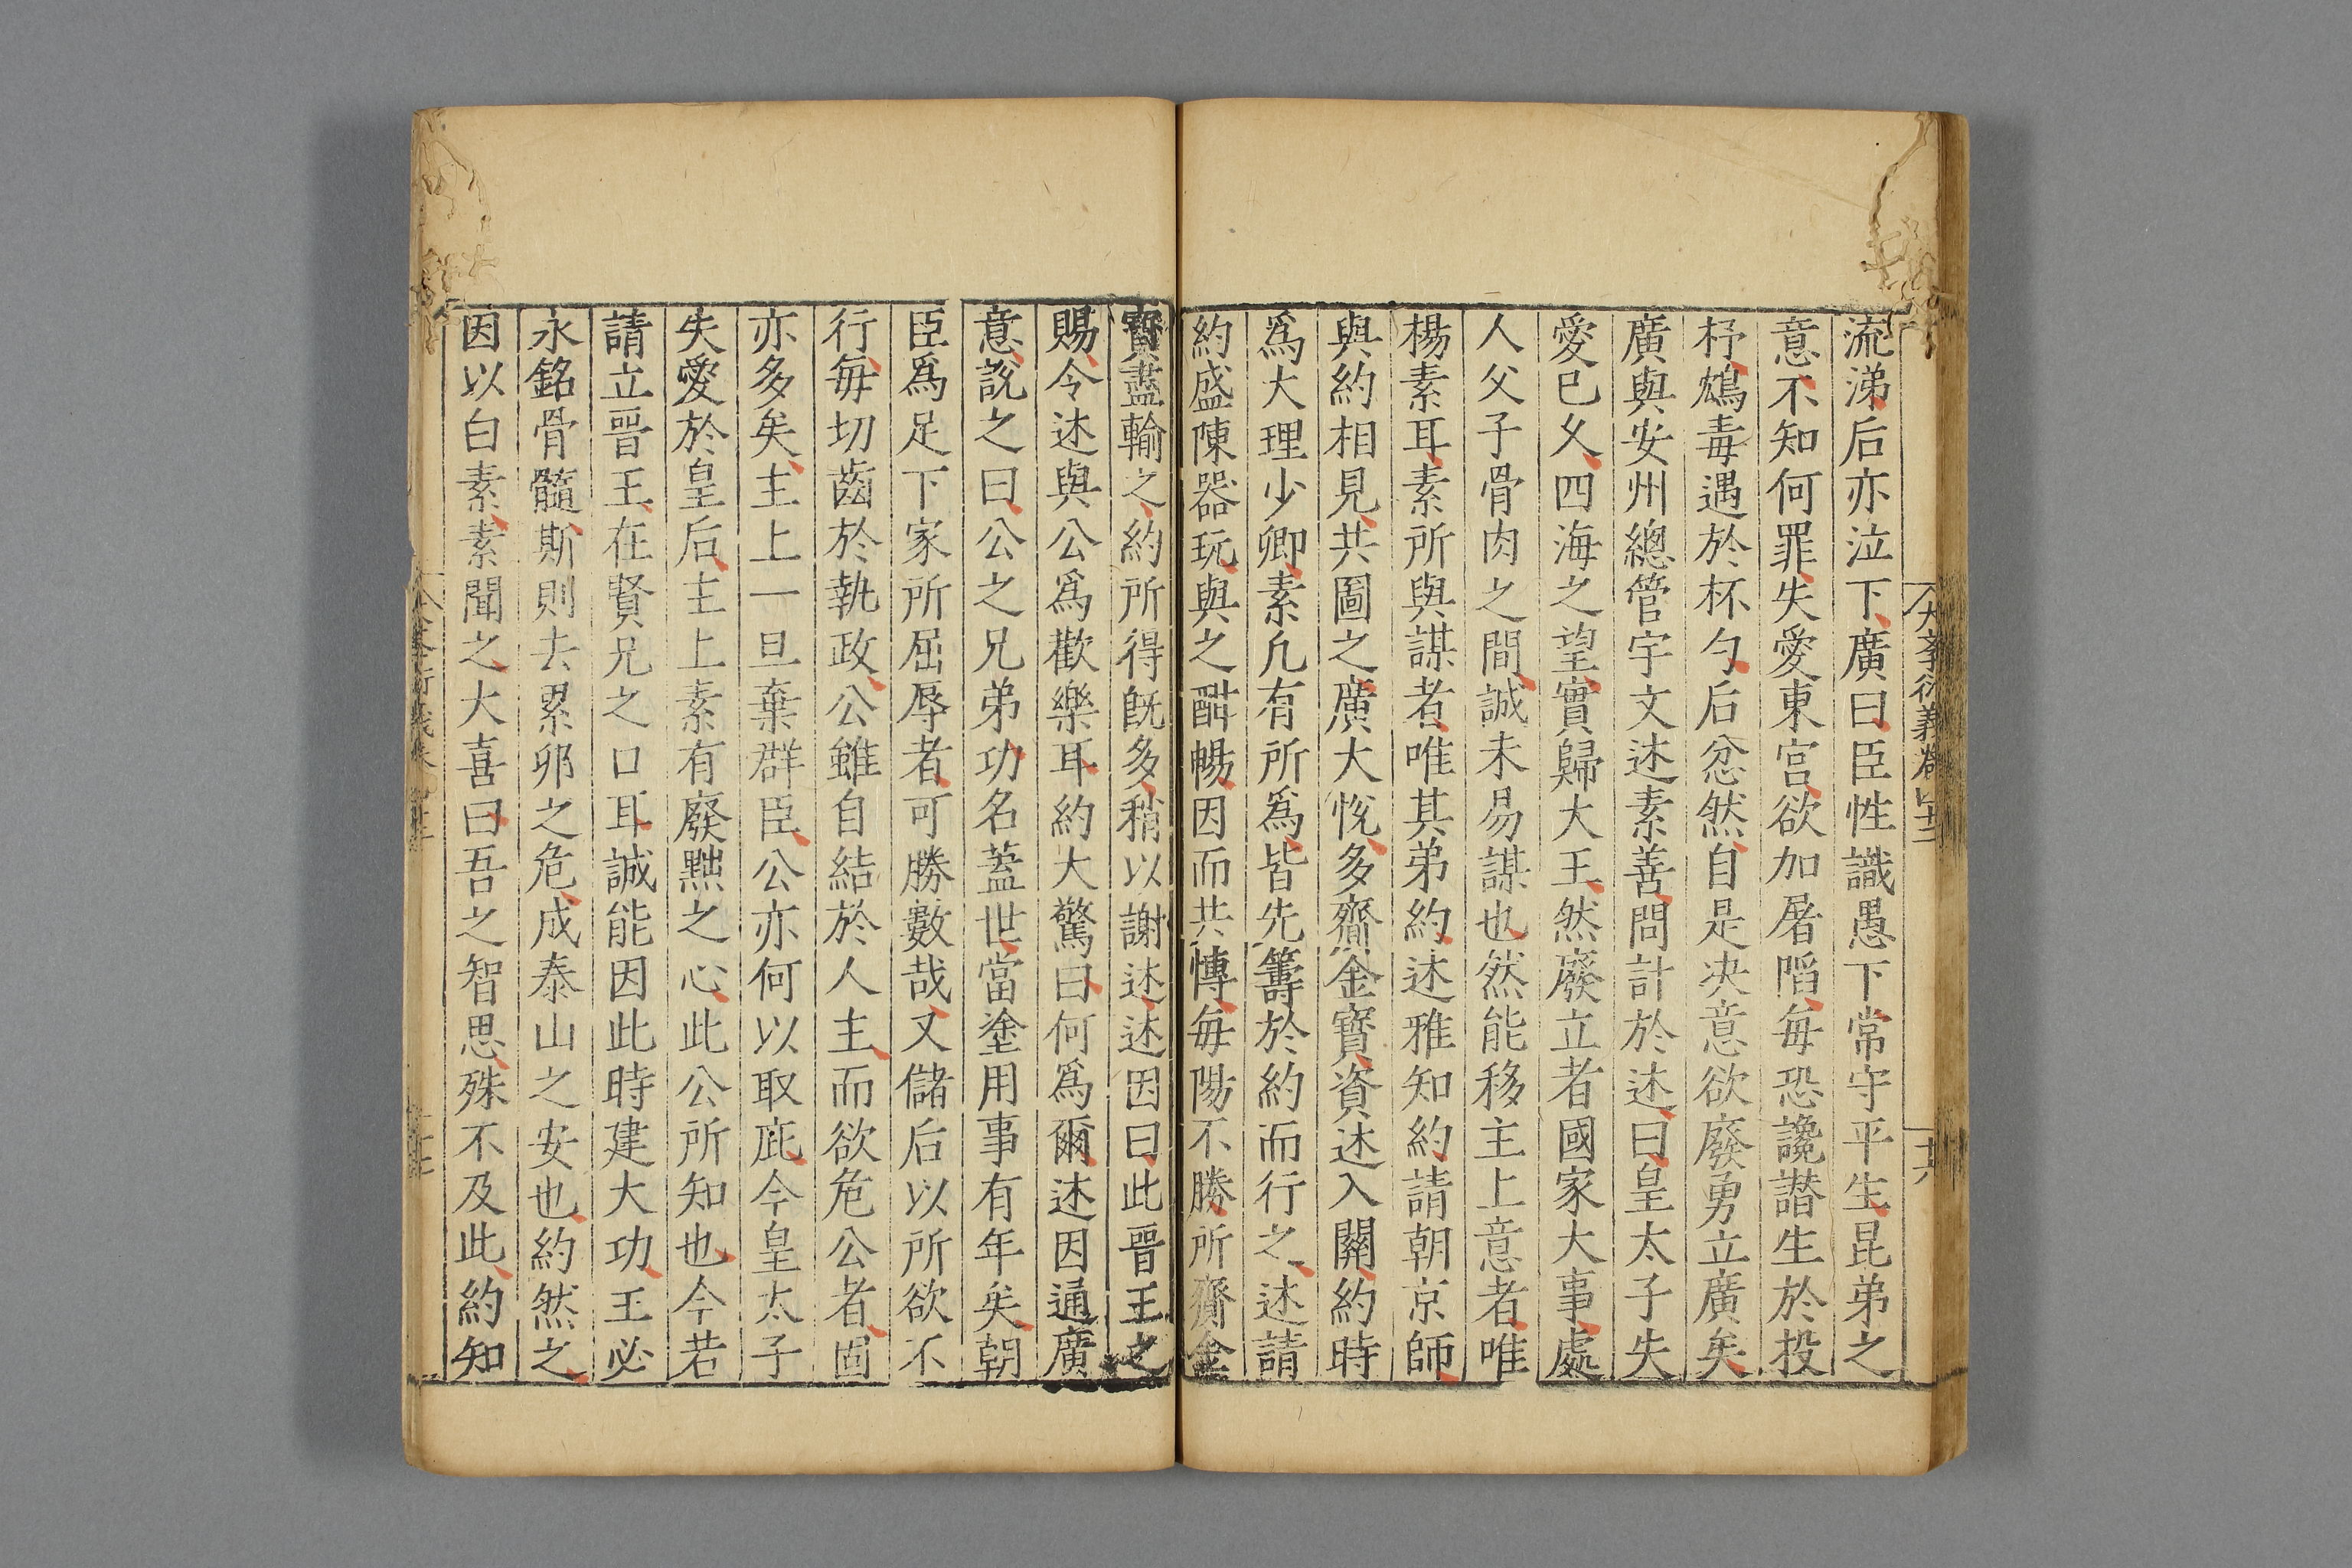 流涕后亦泣下廣曰臣性識愚下常守平生昆弟之
意不知何罪失愛東宫欲加屠陷每恐讒譖生於投
杼鴆毒遇於杯勺后忿然自是决意欲廢勇立廣矣
廣與安州總管宇文述素善問計於述曰皇太子失
愛已久四海之望實歸大王然廢立者國家大事處
人父子骨肉之間誠未易謀也然能移主上意者唯
楊素耳素所與謀者唯其弟約述雅知約請朝京師
與約相見共圖之廣大悅多齎金寶資述入關約時
爲大理少卿素凡有所爲皆先籌於約而行之述請
約盛陳器玩與之酣暢因而共愽每陽不勝所齎金
寶盡輸之約所得旣多稍以謝述述因曰此晋王之
賜令述與公爲歡樂耳約大驚曰何爲爾述因通廣
意說之曰公之兄弟功名蓋世當塗用事有年矣朝
臣爲足下家所屈辱者可勝數哉又儲后以所欲不
行每切齒於執政公雖自結於人主而欲危公者固
亦多矣主上一旦棄群臣公亦何以取庇今皇太子
失愛於皇后主上素有廢黜之心此公所知也今若
請立晋王在賢兄之口耳誠能因此時建大功王必
永銘骨髓斯則去累卵之危成泰山之安也約然之
因以白素素聞之大喜曰吾之智思殊不及此約知